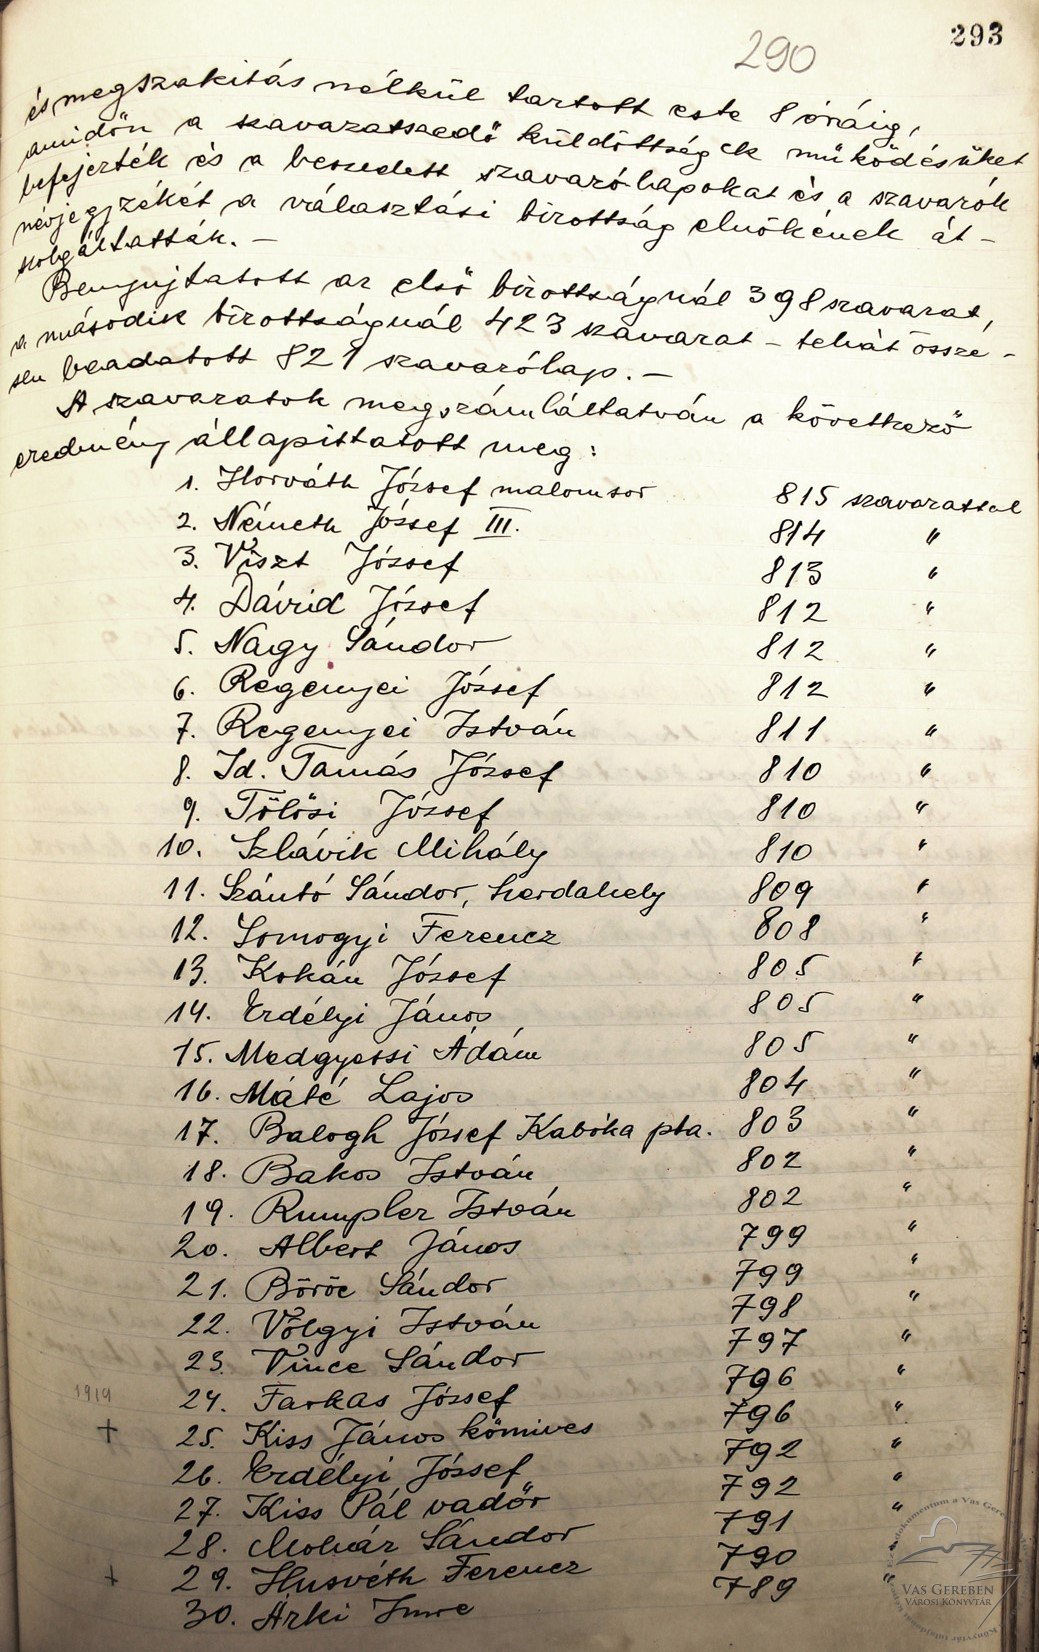 293
290
és megszakitás nélkül tartott este 8 óráig,
amidőn a szavazatszedő küldöttségek működésüket
befejezték és a beszedett szavazólapokat és a szavazók
névjegyzékét a választási bizottság elnökének át-
szolgáltatták. –
Benyujtatott az első bizottságnál 398 szavazat,
a második bizottságnál 423 szavazat – tehát össze-
sen beadatott 821 szavazólap. –
A szavazatok megszámláltatván a következő
eredmény állapittatott meg:
1. Horváth József malomsor 815 szavazattal
2. Németh József III. 814 "
3. Viszt József 813 "
4. Dávid József 812 "
5. Nagy Sándor 812 "
6. Regenyei József 812 "
7. Regenyei István 811 "
8. Id. Tamás József 810 "
9. Tölösi József 810 "
10. Szlávik Mihály 810 "
11. Szántó Sándor, Szerdahely 809 "
12. Somogyi Ferencz 808 "
13. Kokán József 805 "
14. Erdélyi János 805 "
15. Medgyessi Ádám 805 "
16. Máté Lajos 804 "
17. Balogh József Kabóka pta. 803 "
18. Bakos István 802 "
19. Rumpler István 802 "
20. Albert János 799 "
21. Böröc Sándor 799 "
22. Völgyi István 798 "
23. Vince Sándor 797 "
1919 24. Farkas József 796 "
+ 25. Kiss János kőmives 796 "
26. Erdélyi József 792 "
27. Kiss Pál vadőr 792 "
28. Molnár Sándor 791 "
+ 29. Husvéth Ferencz 790
30. Árki Imre 789 "
VAS GEREBEN
VÁROSI KÖNYVTÁR